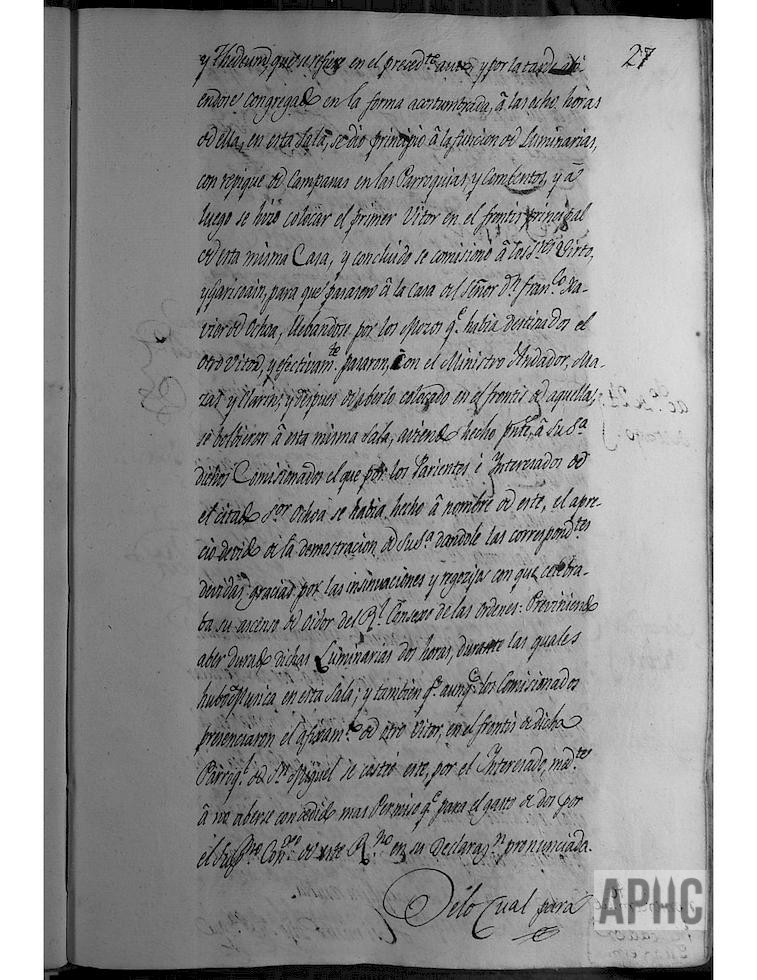 27
y Thedeum, que se refiere en el preced.te auto, y por la tarde abi-
endose congregado en la forma acostumbrada, â las ocho horas
de ella, en esta Sala, se dio principio â la funcion de Luminarias,
con repique de Campanas en las Parroquias, y Combentos, y â
luego se hizo colocar el primer Vitor en el frontis principal
de esta misma Casa, y concluido se comisionó â los S.res Virto,
y Garisoain, para que pasasen â la Casa del Señor D.n Fran.co Xa-
vier de Ochoa, llebandose por los Mozos q.e habia destinados el
otro Vitor, y efectivam.te pasaron, con el Ministro Andador, Ma-
zas y Clarin, y despues de aberlo colocado en el frontis de aquella,
se bolbieron â esta misma Sala, aviendo hecho pnte, â su S.a
dichos Comisionados el que por los Parientes é Interesados de
el citado S.or Ochoa se habia hecho â nombre de este, el apre-
cio devido de la demostracion de su S.a dandole las correspond.tes
devidas gracias por las insinuaciones y regozijos con que celebra-
ba su ascenso de oidor del R.l Consexo de las ordenes: Previniendo
aber durado dichas Luminarias dos horas, durante las quales
hubo Musica en esta Sala; y tambien q.e aunq.e los Comisionados
presenciaron el afixam.to de otro Vitor, en el frontis de dicha
Parroq.l de S.n Miguel se costeó este, por el Interesado, med.te
â no aberse concedido mas Permiso q.e para el gasto de dos por
el Sup.mo Con.xo de este R.no en su Declaraz.n pronunciada.
De lo Cual para
APHC